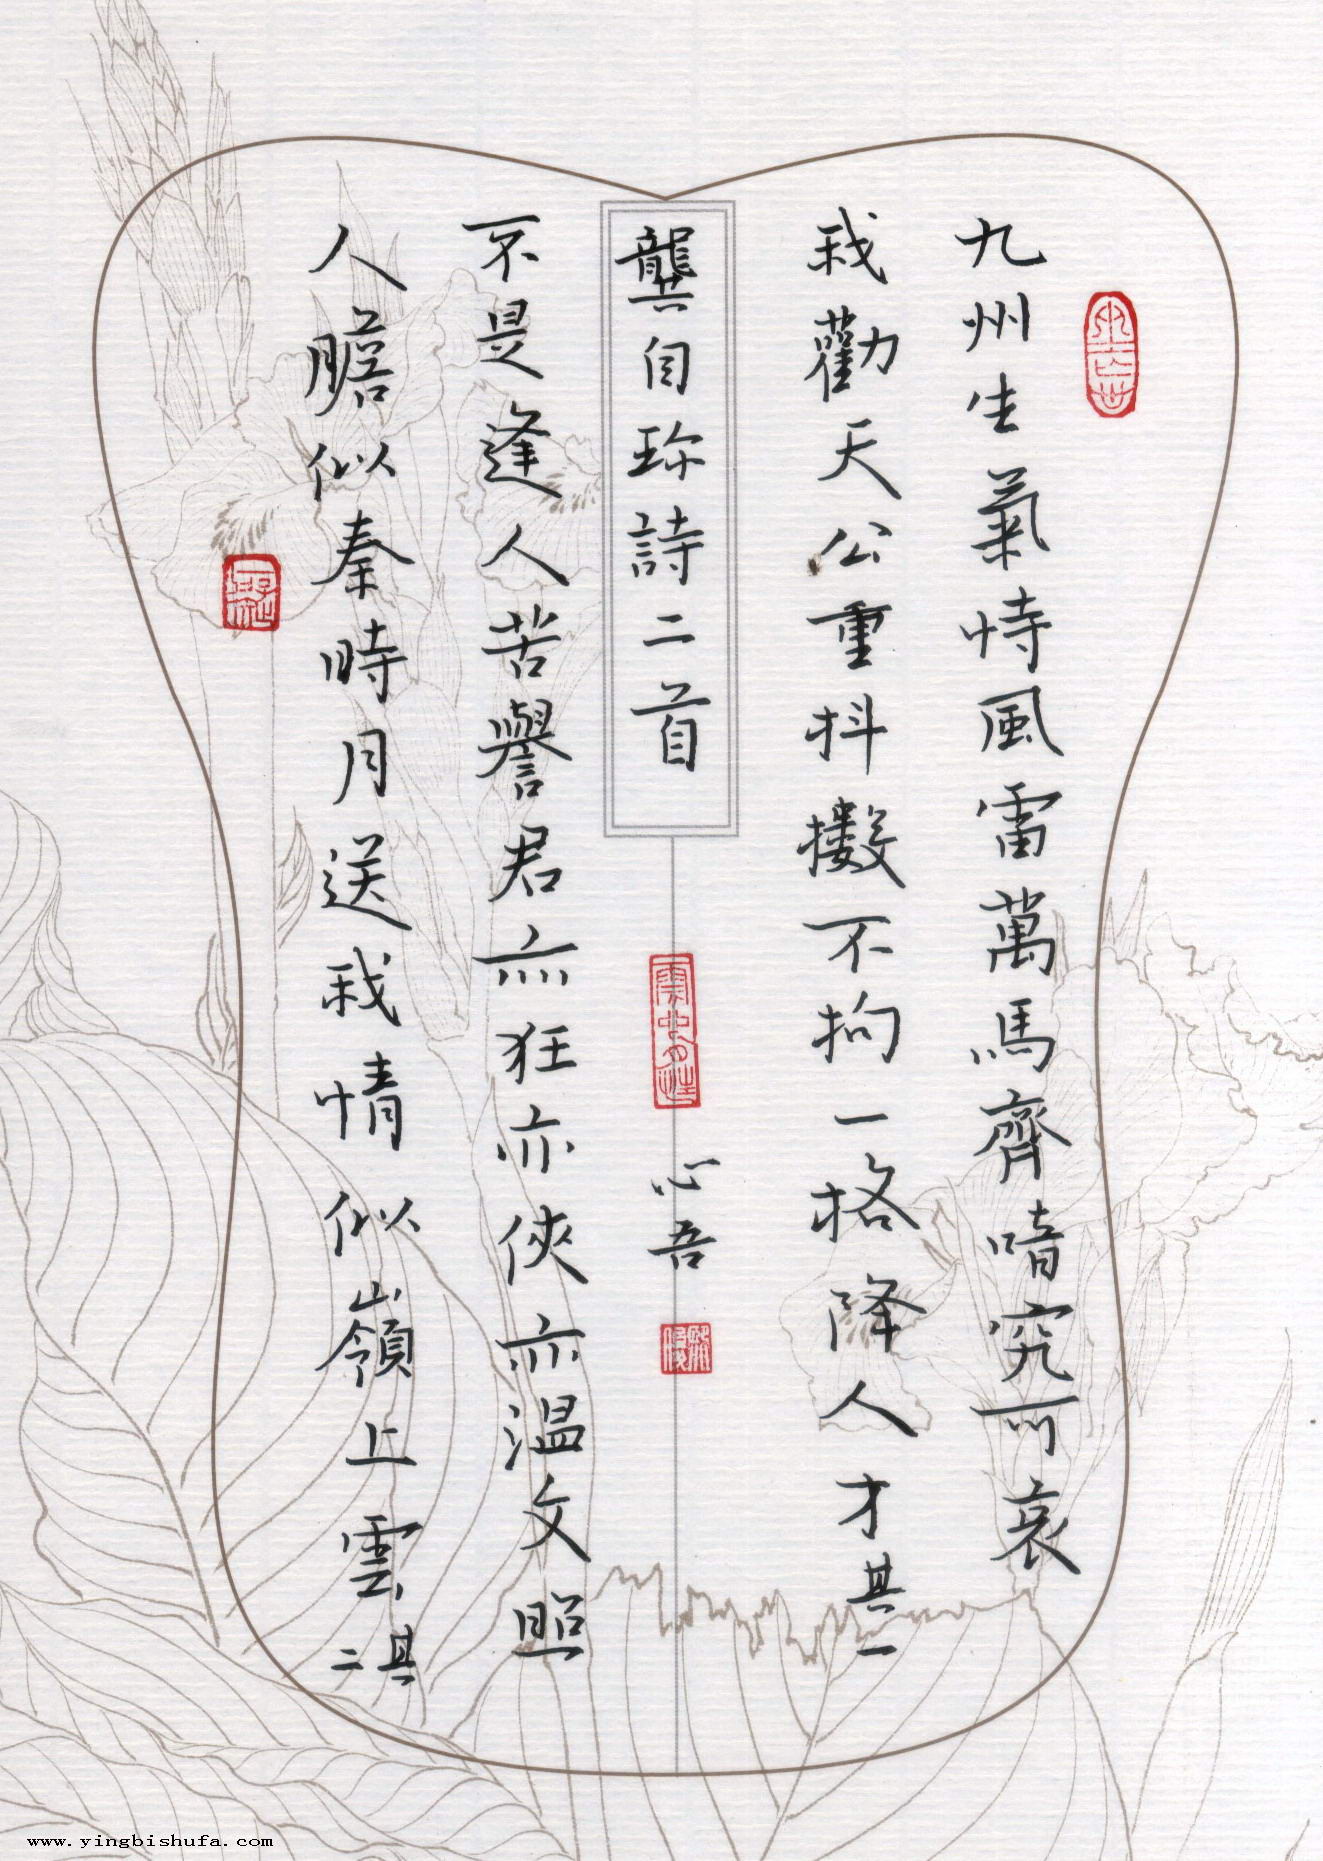 九州生氣恃風雷萬馬齊喑究可哀
我勸天公重抖擻不拘一格降人才其一
龔自珍詩二首
心吾
不是逢人苦譽君亦狂亦俠亦温文照
人膽似秦時月送我情似嶺上雲其二
www.yingbishufa.com